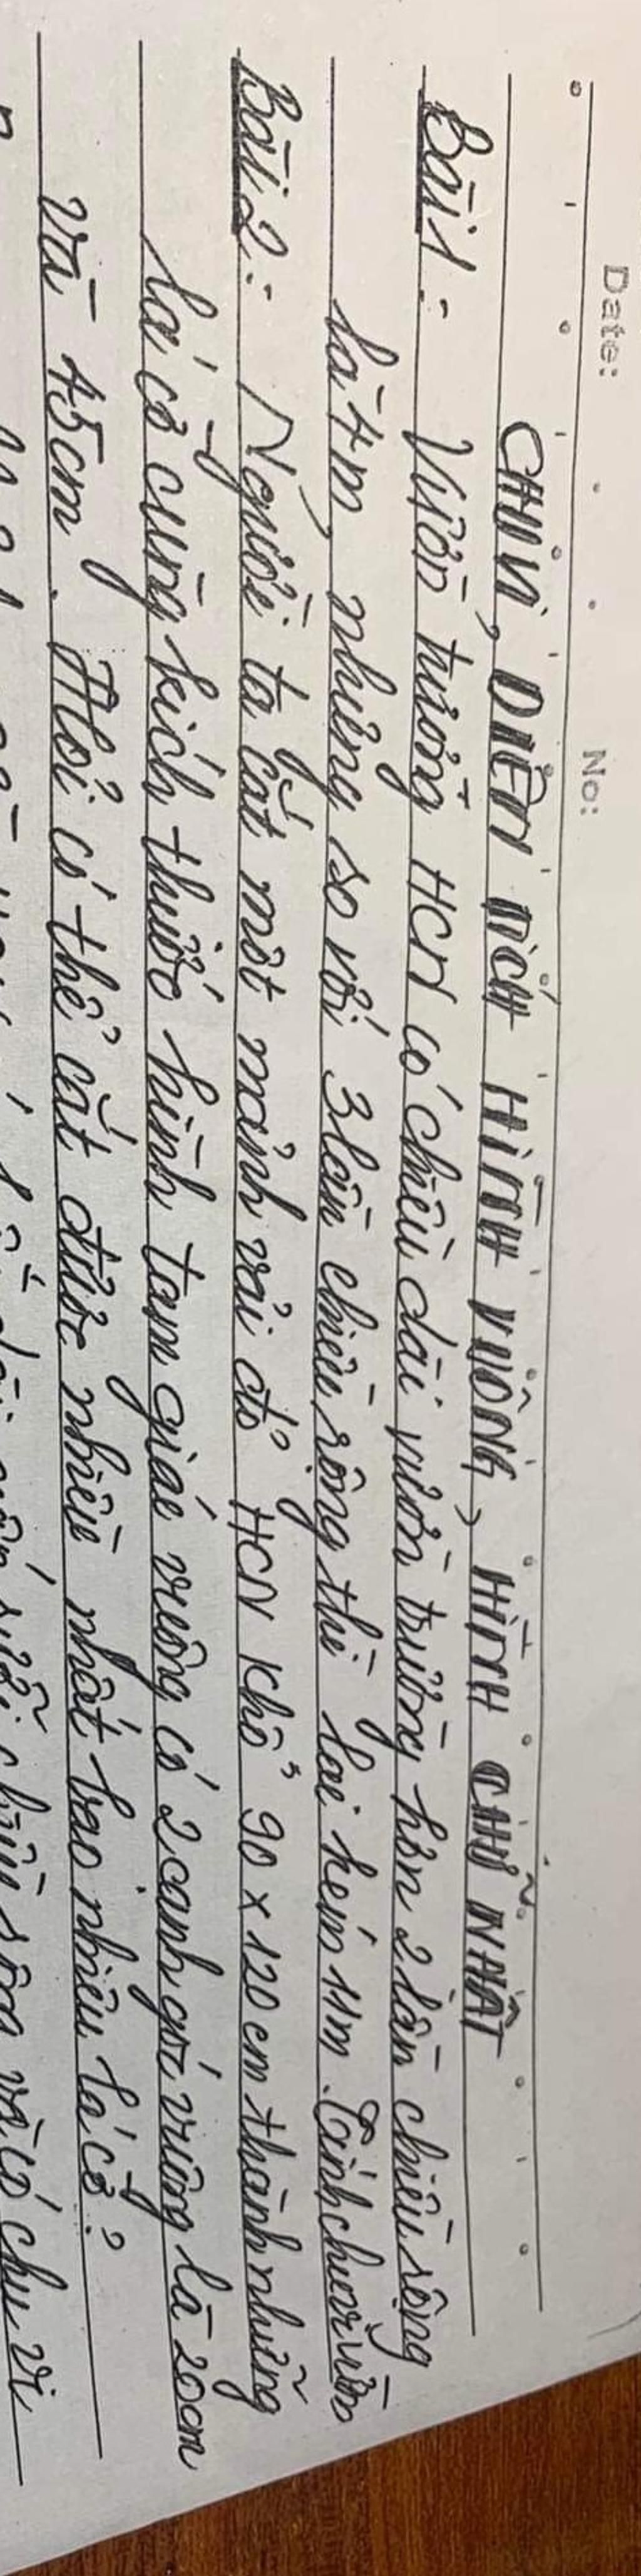 Date: No:
CHU VI, DIỆN TÍCH HÌNH VUÔNG, HÌNH CHỮ NHẬT
Bài 1: Vườn trường HCN có chiều dài vườn trường hơn 2 lần chiều rộng
là 4m, nhưng so với 3 lần chiều rộng thì lại kém 11m. Tính chu vi vườn
Bài 2: Người ta cắt một mảnh vải đỏ HCN khổ 90 x 120 cm thành những
lá cờ cùng kích thước hình tam giác vuông có 2 cạnh góc vuông là 20cm
và 45cm. Hỏi có thể cắt được nhiều nhất bao nhiêu lá cờ?
chiều rộng và có chu vi